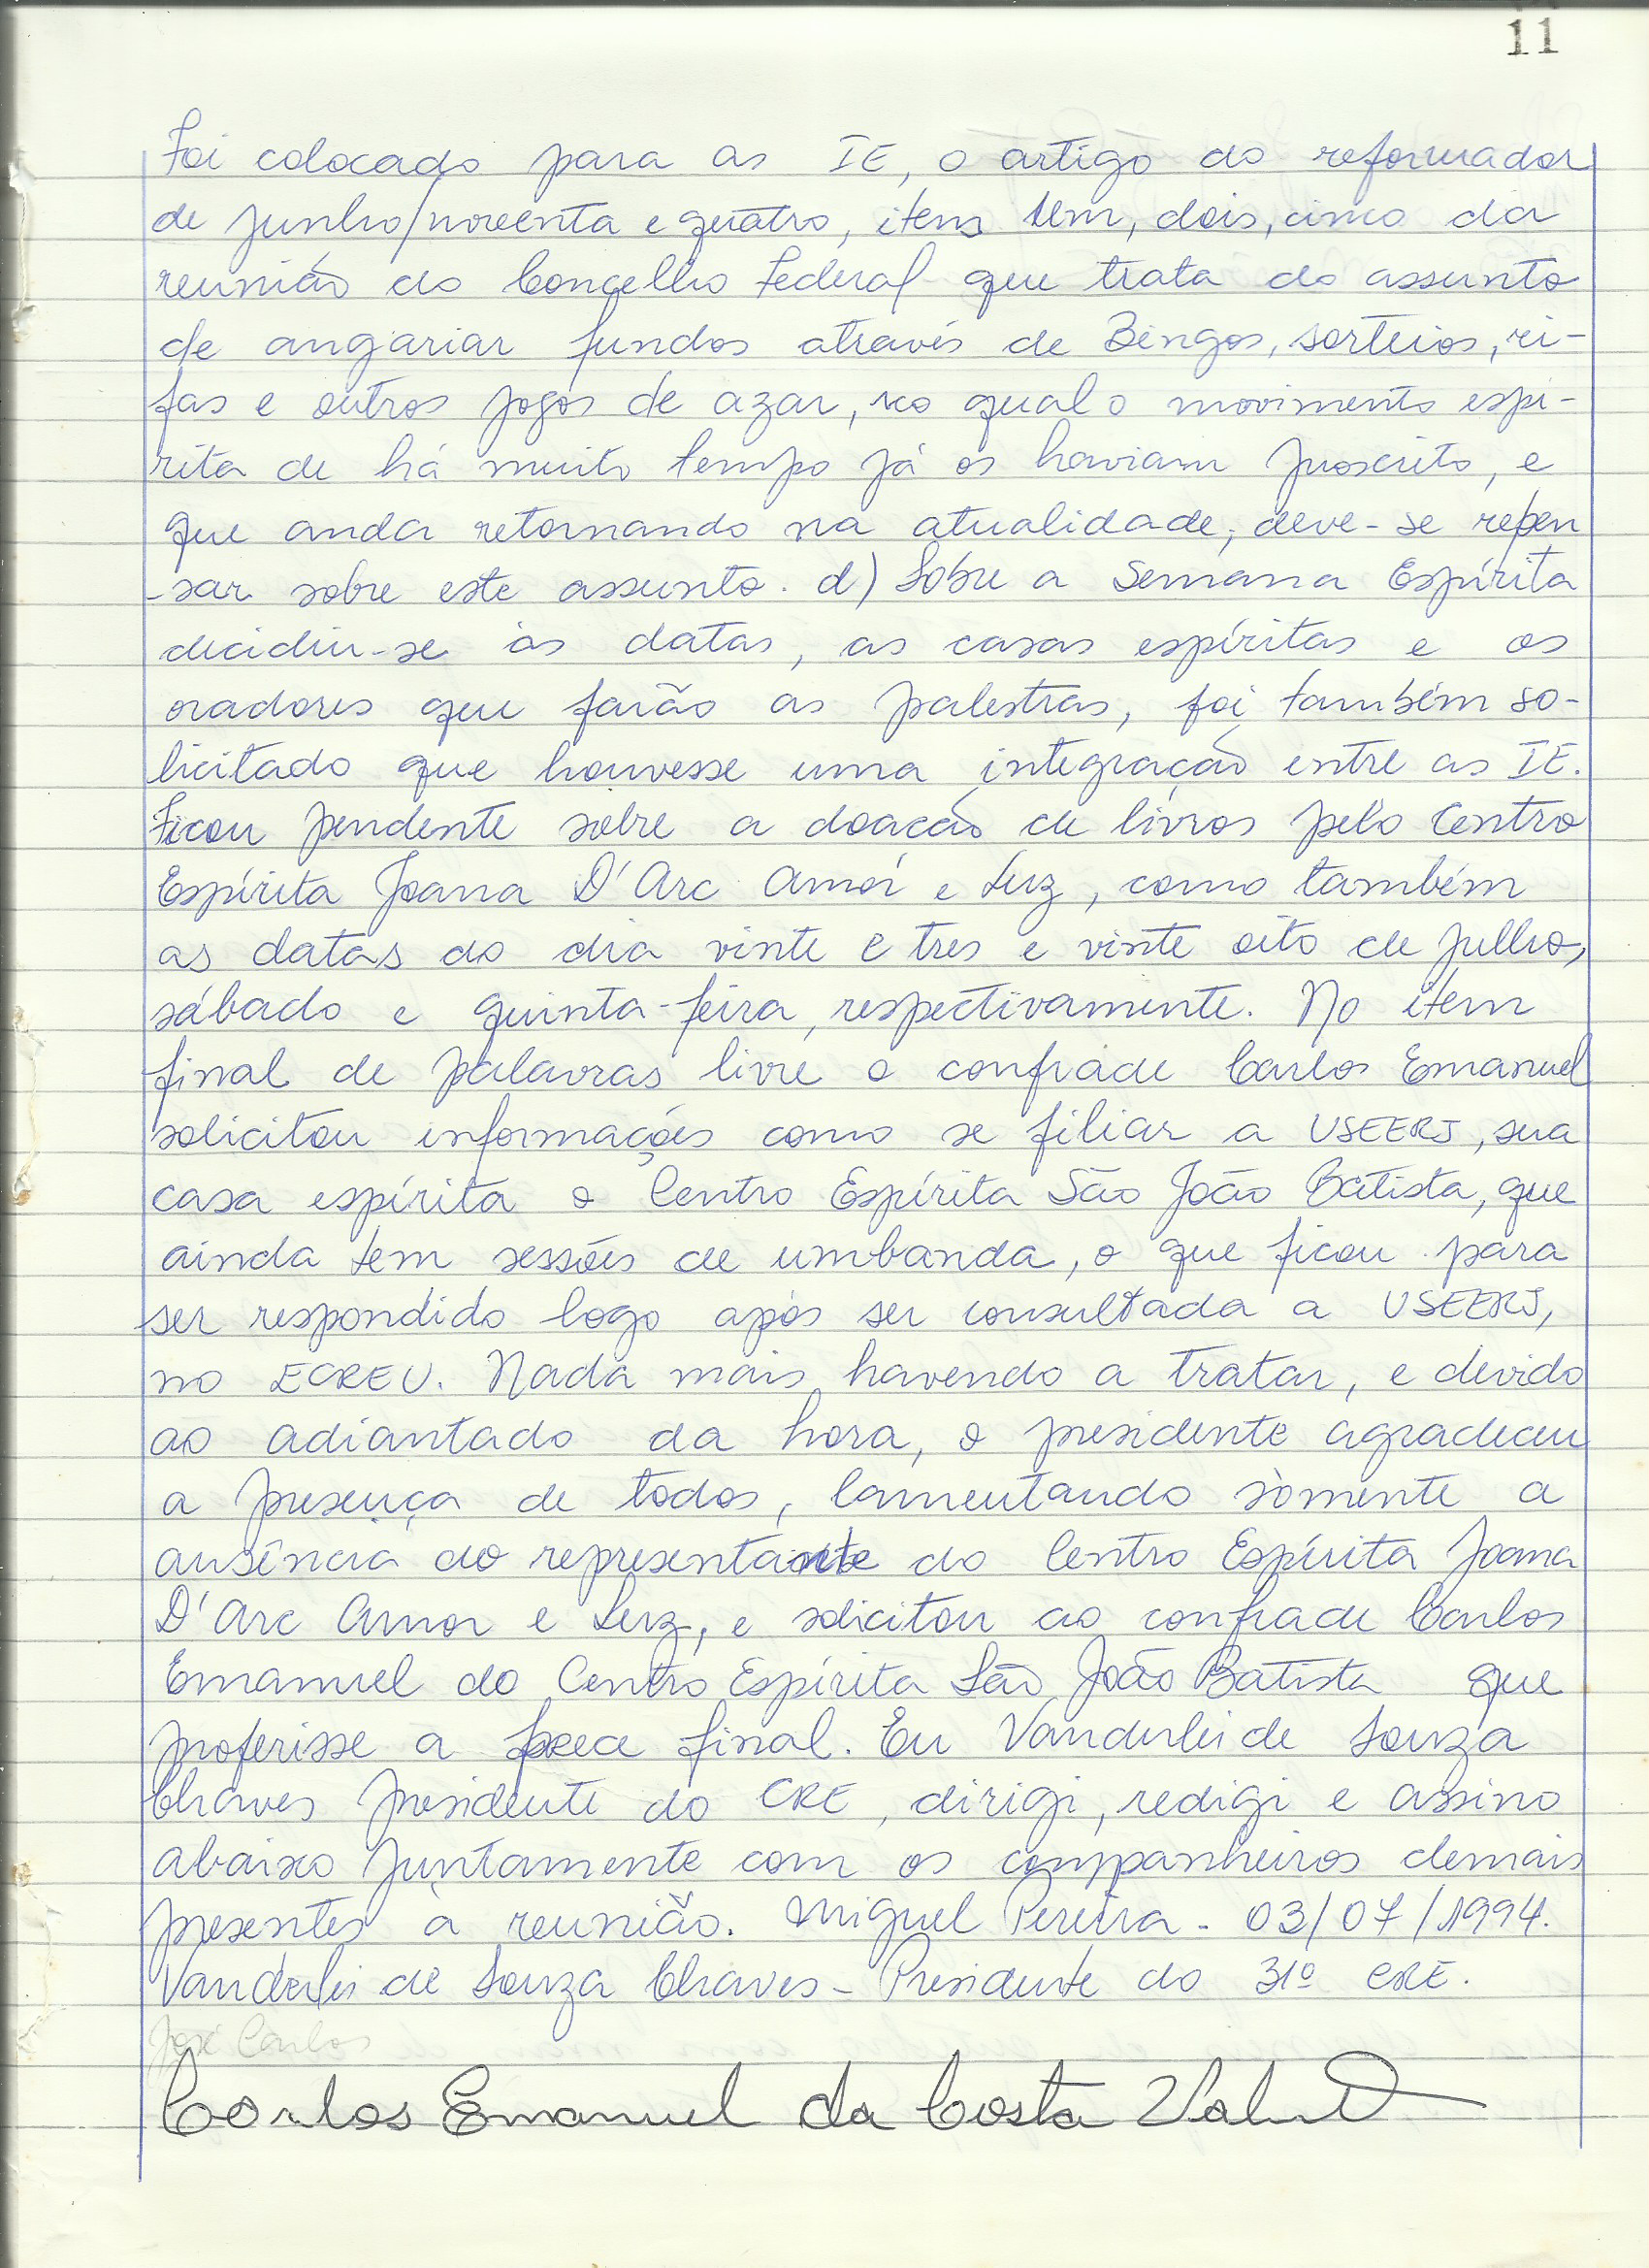 11
Foi colocado para as IE, o artigo do reformador
de junho/noventa e quatro, itens um, dois, cinco da
reunião do Concelho Federal que trata do assunto
de angariar fundos através de Bingos, sorteios, ri-
fas e outros jogos de azar, no qual o movimento espí-
rita de há muito tempo já os haviam proscrito, e
que anda retornando na atualidade, deve-se repen
-sar sobre este assunto. d) Sobre a Semana Espírita
decidiu-se as datas, as casas espíritas e os
oradores que farão as palestras, foi também so-
licitado que houvesse uma integração entre as IE.
Ficou pendente sobre a doação de livros pelo Centro
Espírita Joana D'Arc Amor e Luz, como também
as datas do dia vinte e tres e vinte oito de julho,
sábado e quinta-feira, respectivamente. No item
final de palavras livre o confrade Carlos Emanuel
solicitou informações como se filiar a USEERJ, sua
casa espírita o Centro Espírita São João Batista, que
ainda tem sessões de umbanda, o que ficou para
ser respondido logo após ser consultada a USEERJ,
no ECREU. Nada mais havendo a tratar, e devido
ao adiantado da hora, o presidente agradeceu
a presença de todos, lamentando sòmente a
ausência do representante do Centro Espírita Joana
D'Arc Amor e Luz, e solicitou ao confrade Carlos
Emanuel do Centro Espírita São João Batista que
proferisse a prece final. Eu Vanderlei de Souza
Chaves presidente do CRE, dirigi, redigi e assino
abaixo juntamente com os companheiros demais
presentes à reunião. Miguel Pereira - 03/07/1994.
Vanderlei de Souza Chaves - Presidente do 31º CRE.
José Carlos
Carlos Emanuel da Costa